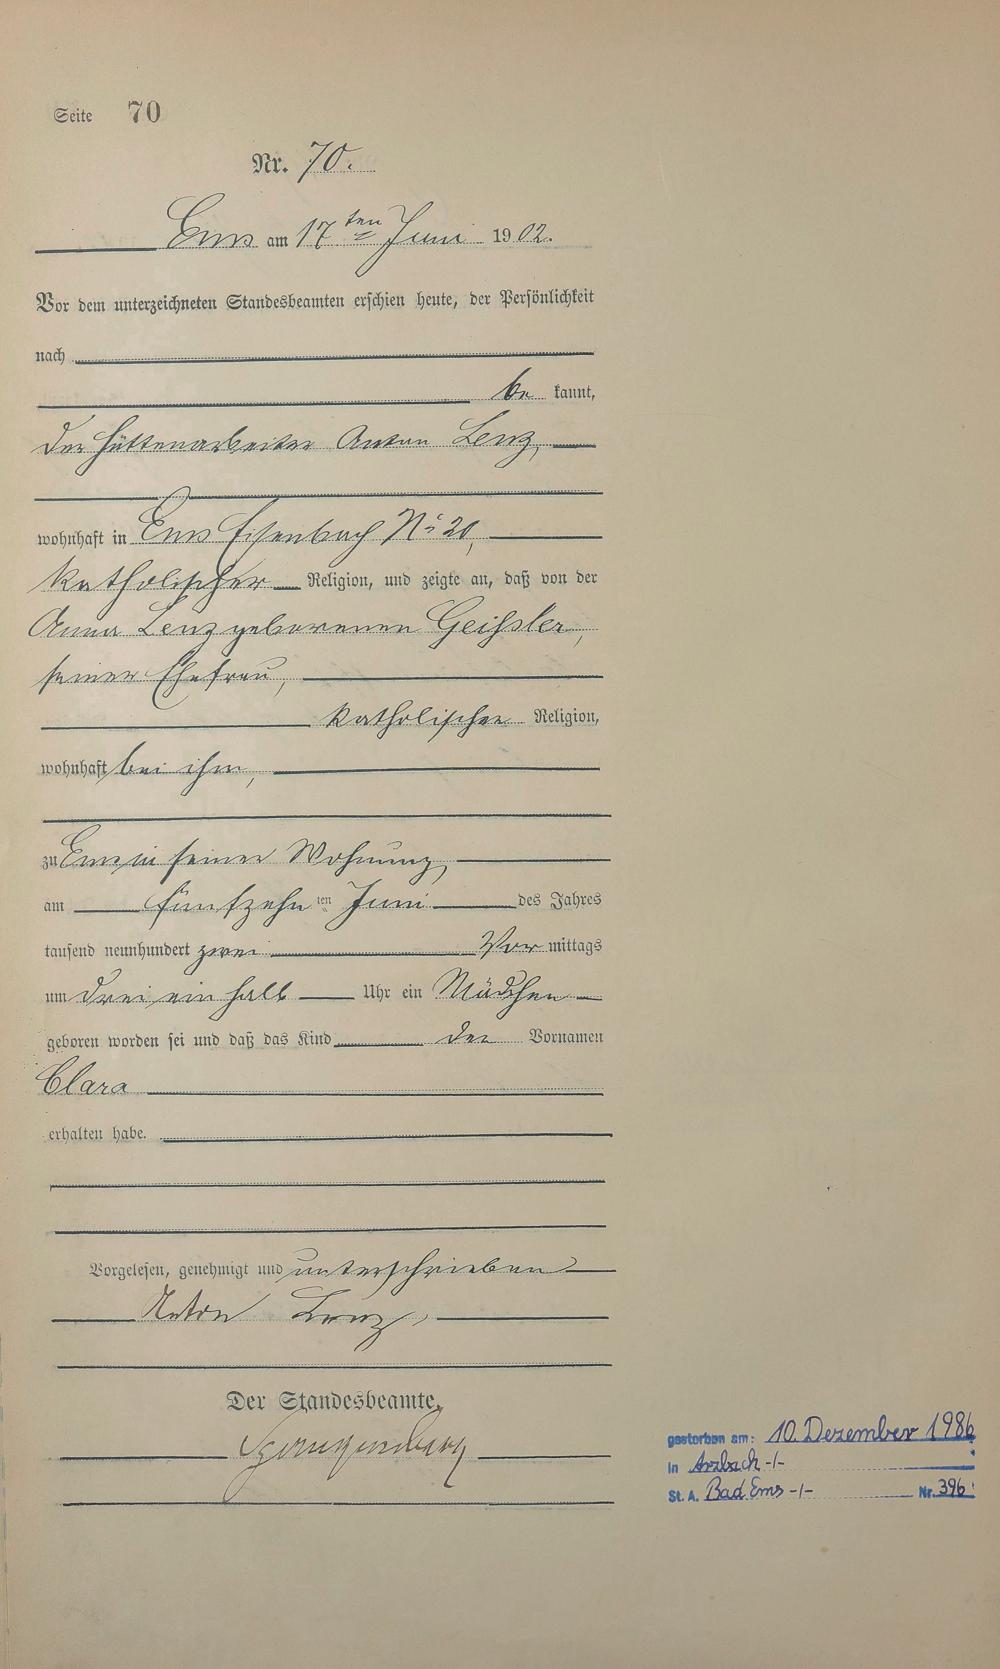 Seite 70
Nr. 70.
Ems am 17ten Juni 1902.
Vor dem unterzeichneten Standesbeamten erschien heute, der Persönlichkeit
nach
be kannt,
der Hüttenarbeiter Anton Lenz,
wohnhaft in Ems Eisenbach No 20,
katholischer Religion, und zeigte an, daß von der
Anna Lenz geborenen Geißler,
seiner Ehefrau,
katholischer Religion,
wohnhaft bei ihm,
zu Ems in seiner Wohnung,
am fünfzehn ten Juni des Jahres
tausend neunhundert zwei Vor mittags
um drei ein halb Uhr ein Mädchen
geboren worden sei und daß das Kind den Vornamen
Clara
erhalten habe.
Vorgelesen, genehmigt und unterschrieben
Anton Lenz,
Der Standesbeamte.
gestorben am: 10. Dezember 1986
in Arzbach -/-
St. A. Bad Ems -/- Nr. 396